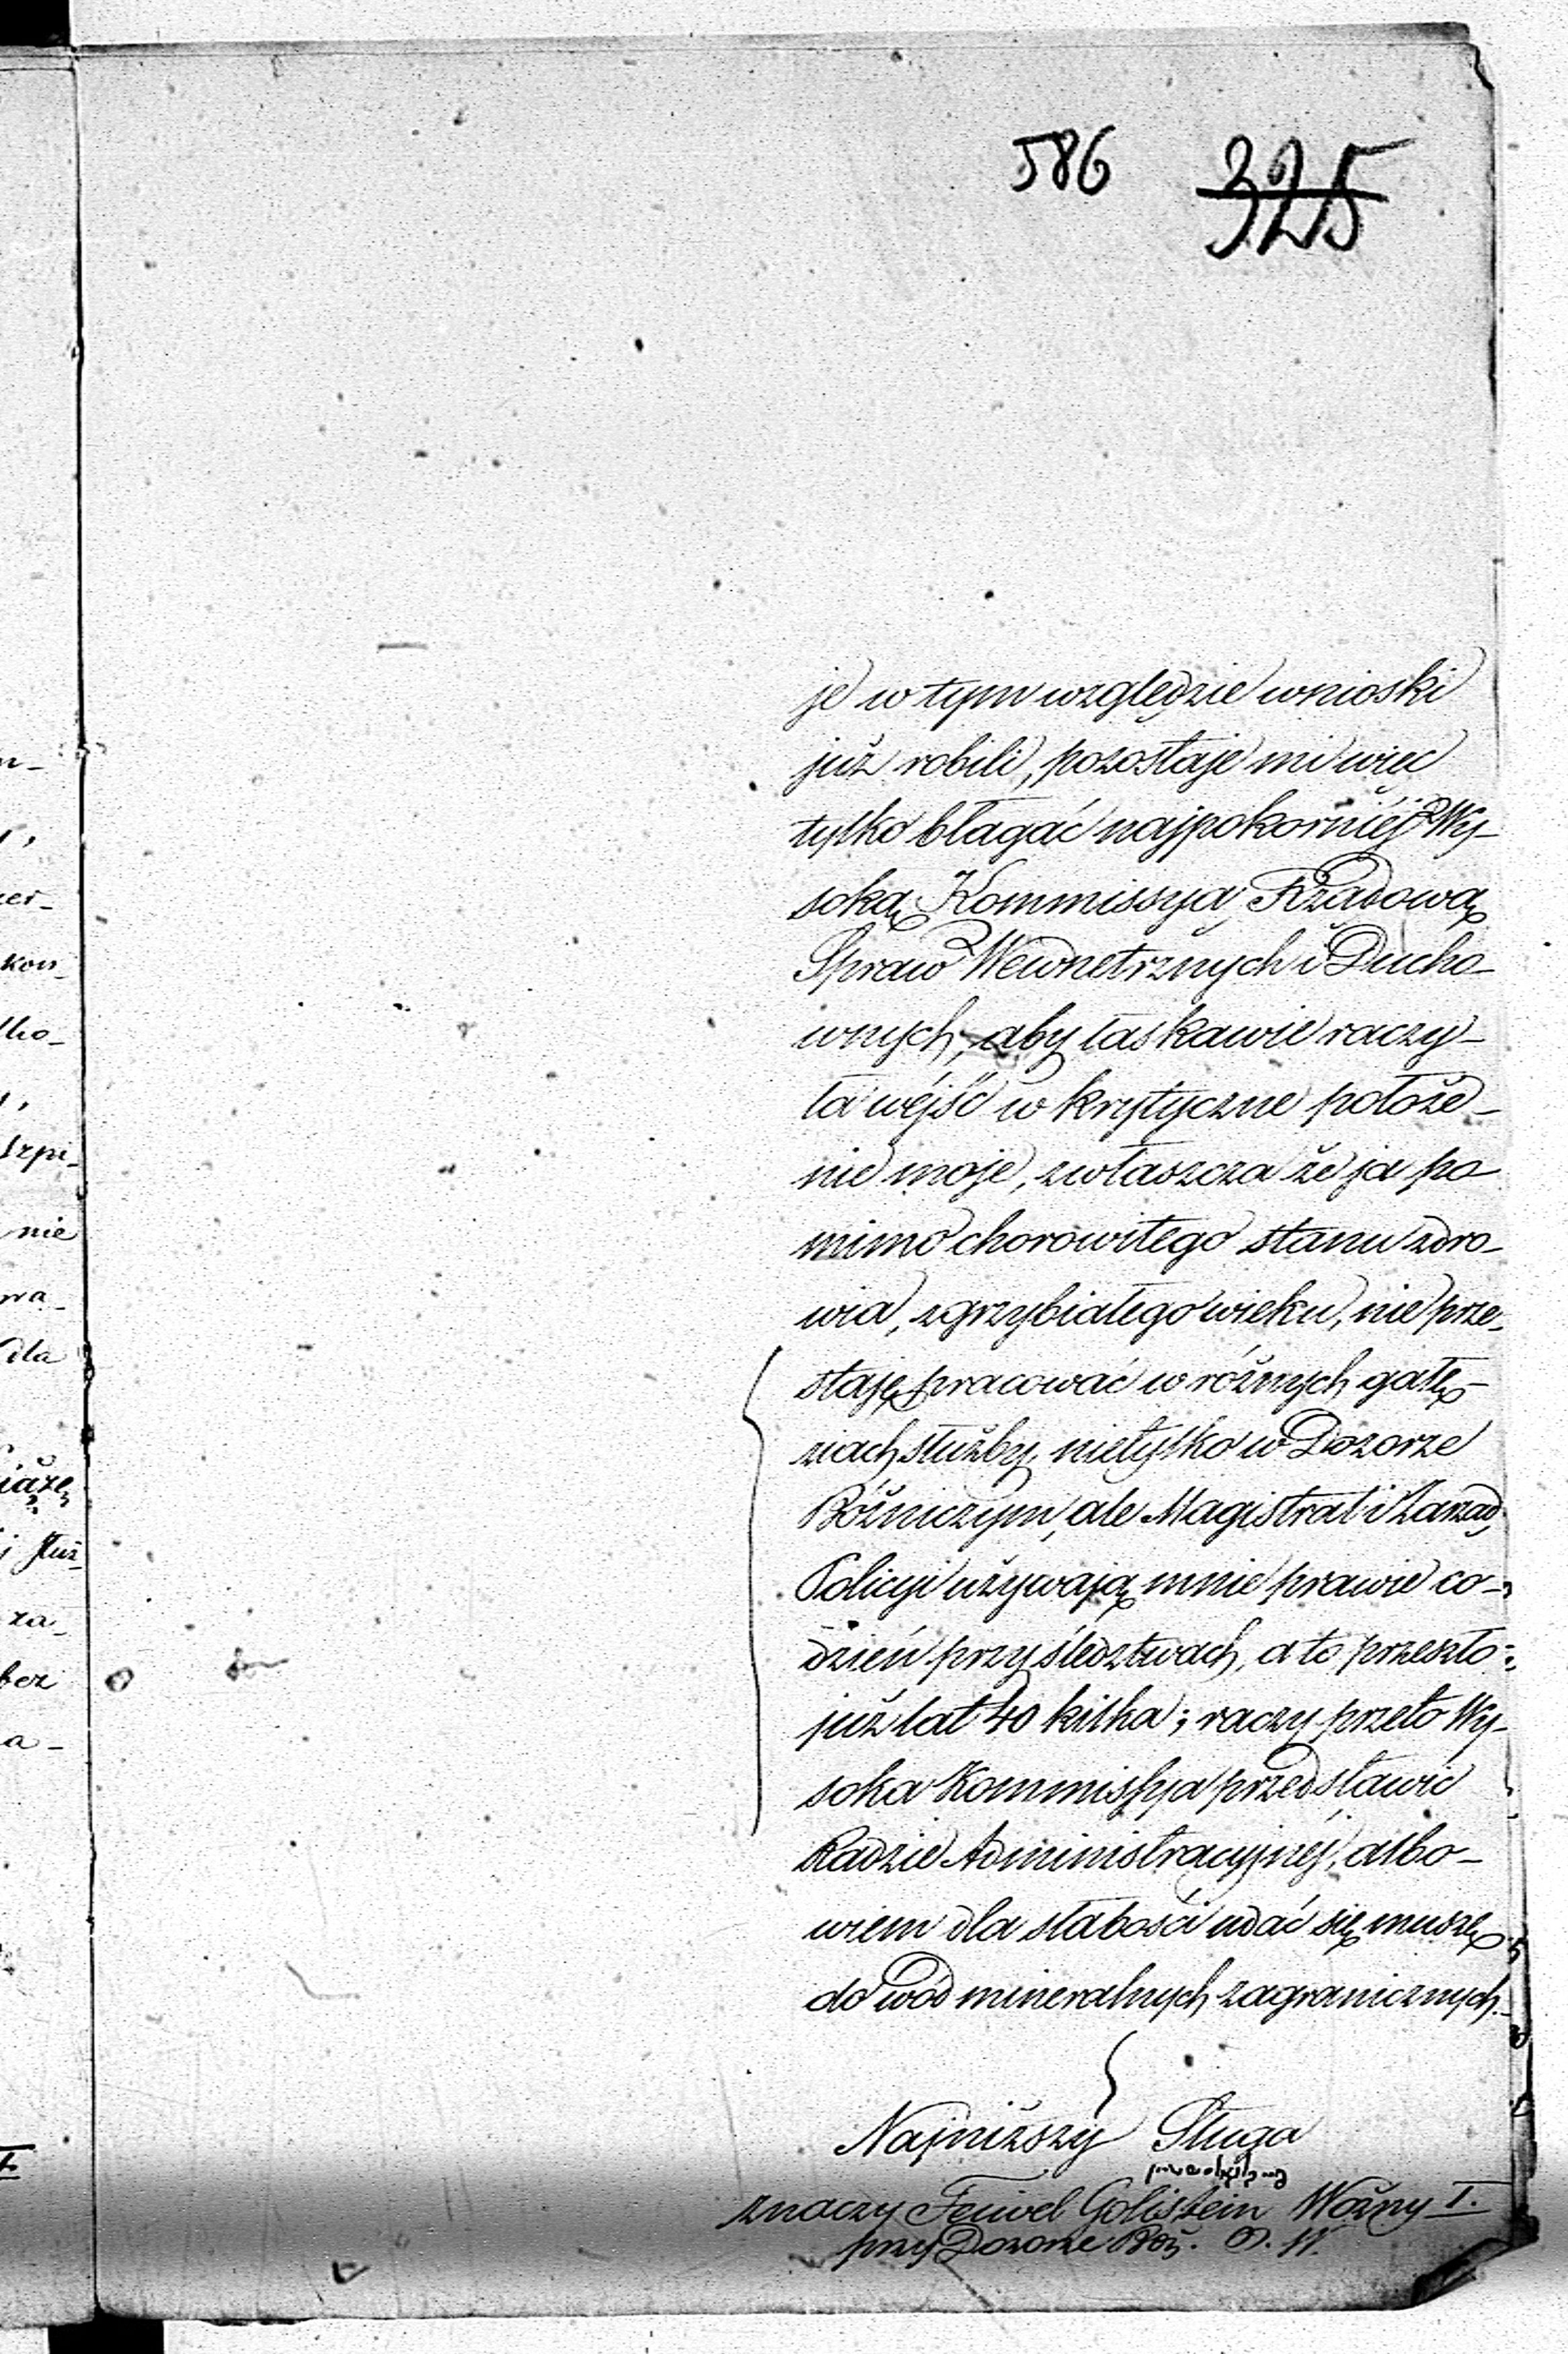 586 325
je w tym względzie wnioski
już robili, pozostaje mi więc
tylko błagać najpokorniéj Wy-
soką Kommissyą Rządową
Spraw Wewnętrznych i Ducho-
wnych, aby łaskawie raczy-
ła wejść w krytyczne położe-
nie moje, zwłaszcza że ja po
mimo chorowitego stanu zdro-
wia, zgrzybiałego wieku, nie prze-
staję pracować w różnych gałę-
ziach służby, nietylko w Dozorze
Bóźniczym, ale Magistrat i Zarząd
Policyi używają mnie prawie co-
dzień przy śledztwach, a to przeszło
już lat 40 kilka; raczy przeto Wy-
soka Kommissya przedstawić
Radzie Administracyjnéj, albo-
wiem dla słabości udać się muszę
do wód mineralnych zagranicznych.
Najniższy Sługa
znaczy Feiwel Golistein Woźny I.
przy Dozorze Boż. O. W.
n-
kon-
Szpi-
nie
dla
iążę
Już
za-
bez
a-